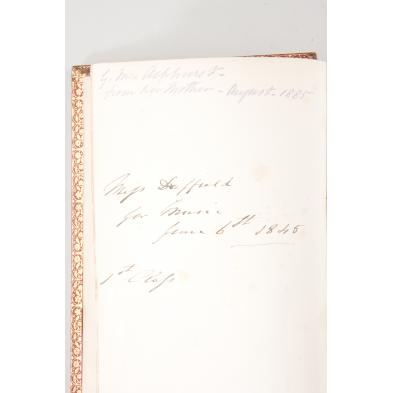 Ashhurst
from her Mother - August - 1885
Miss Duffield
for Music
June 6th 1845
1st Class